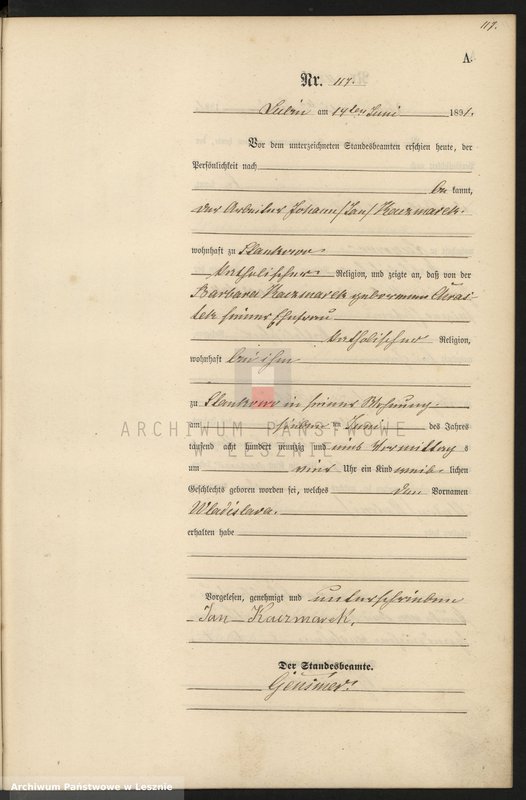 117.
A.
Nr. 117.
Lubin am 14ten Juni 1891.
Vor dem unterzeichneten Standesbeamten erschien heute, der
Persönlichkeit nach
be kannt,
der Arbeiter Johann /Jan/ Kaczmarek.
wohnhaft zu Stankowo
katholischer Religion, und zeigte an, daß von der
Barbara Kaczmarek geborenen
seiner Ehefrau
katholischer Religion,
wohnhaft bei ihm
zu Stankowo in seiner Wohnung
am sieben ten Juni des Jahres
tausend acht hundert neunzig und eins Vormittag s
um Uhr ein Kind weib lichen
Geschlechts geboren worden sei, welches den Vornamen
Wladislava.
erhalten habe
ARCHIWUM PAŃSTWOWE
W LESZNIE
Vorgelesen, genehmigt und unterschrieben
Jan Kaczmarek,
Der Standesbeamte.
Archiwum Państwowe w Lesznie